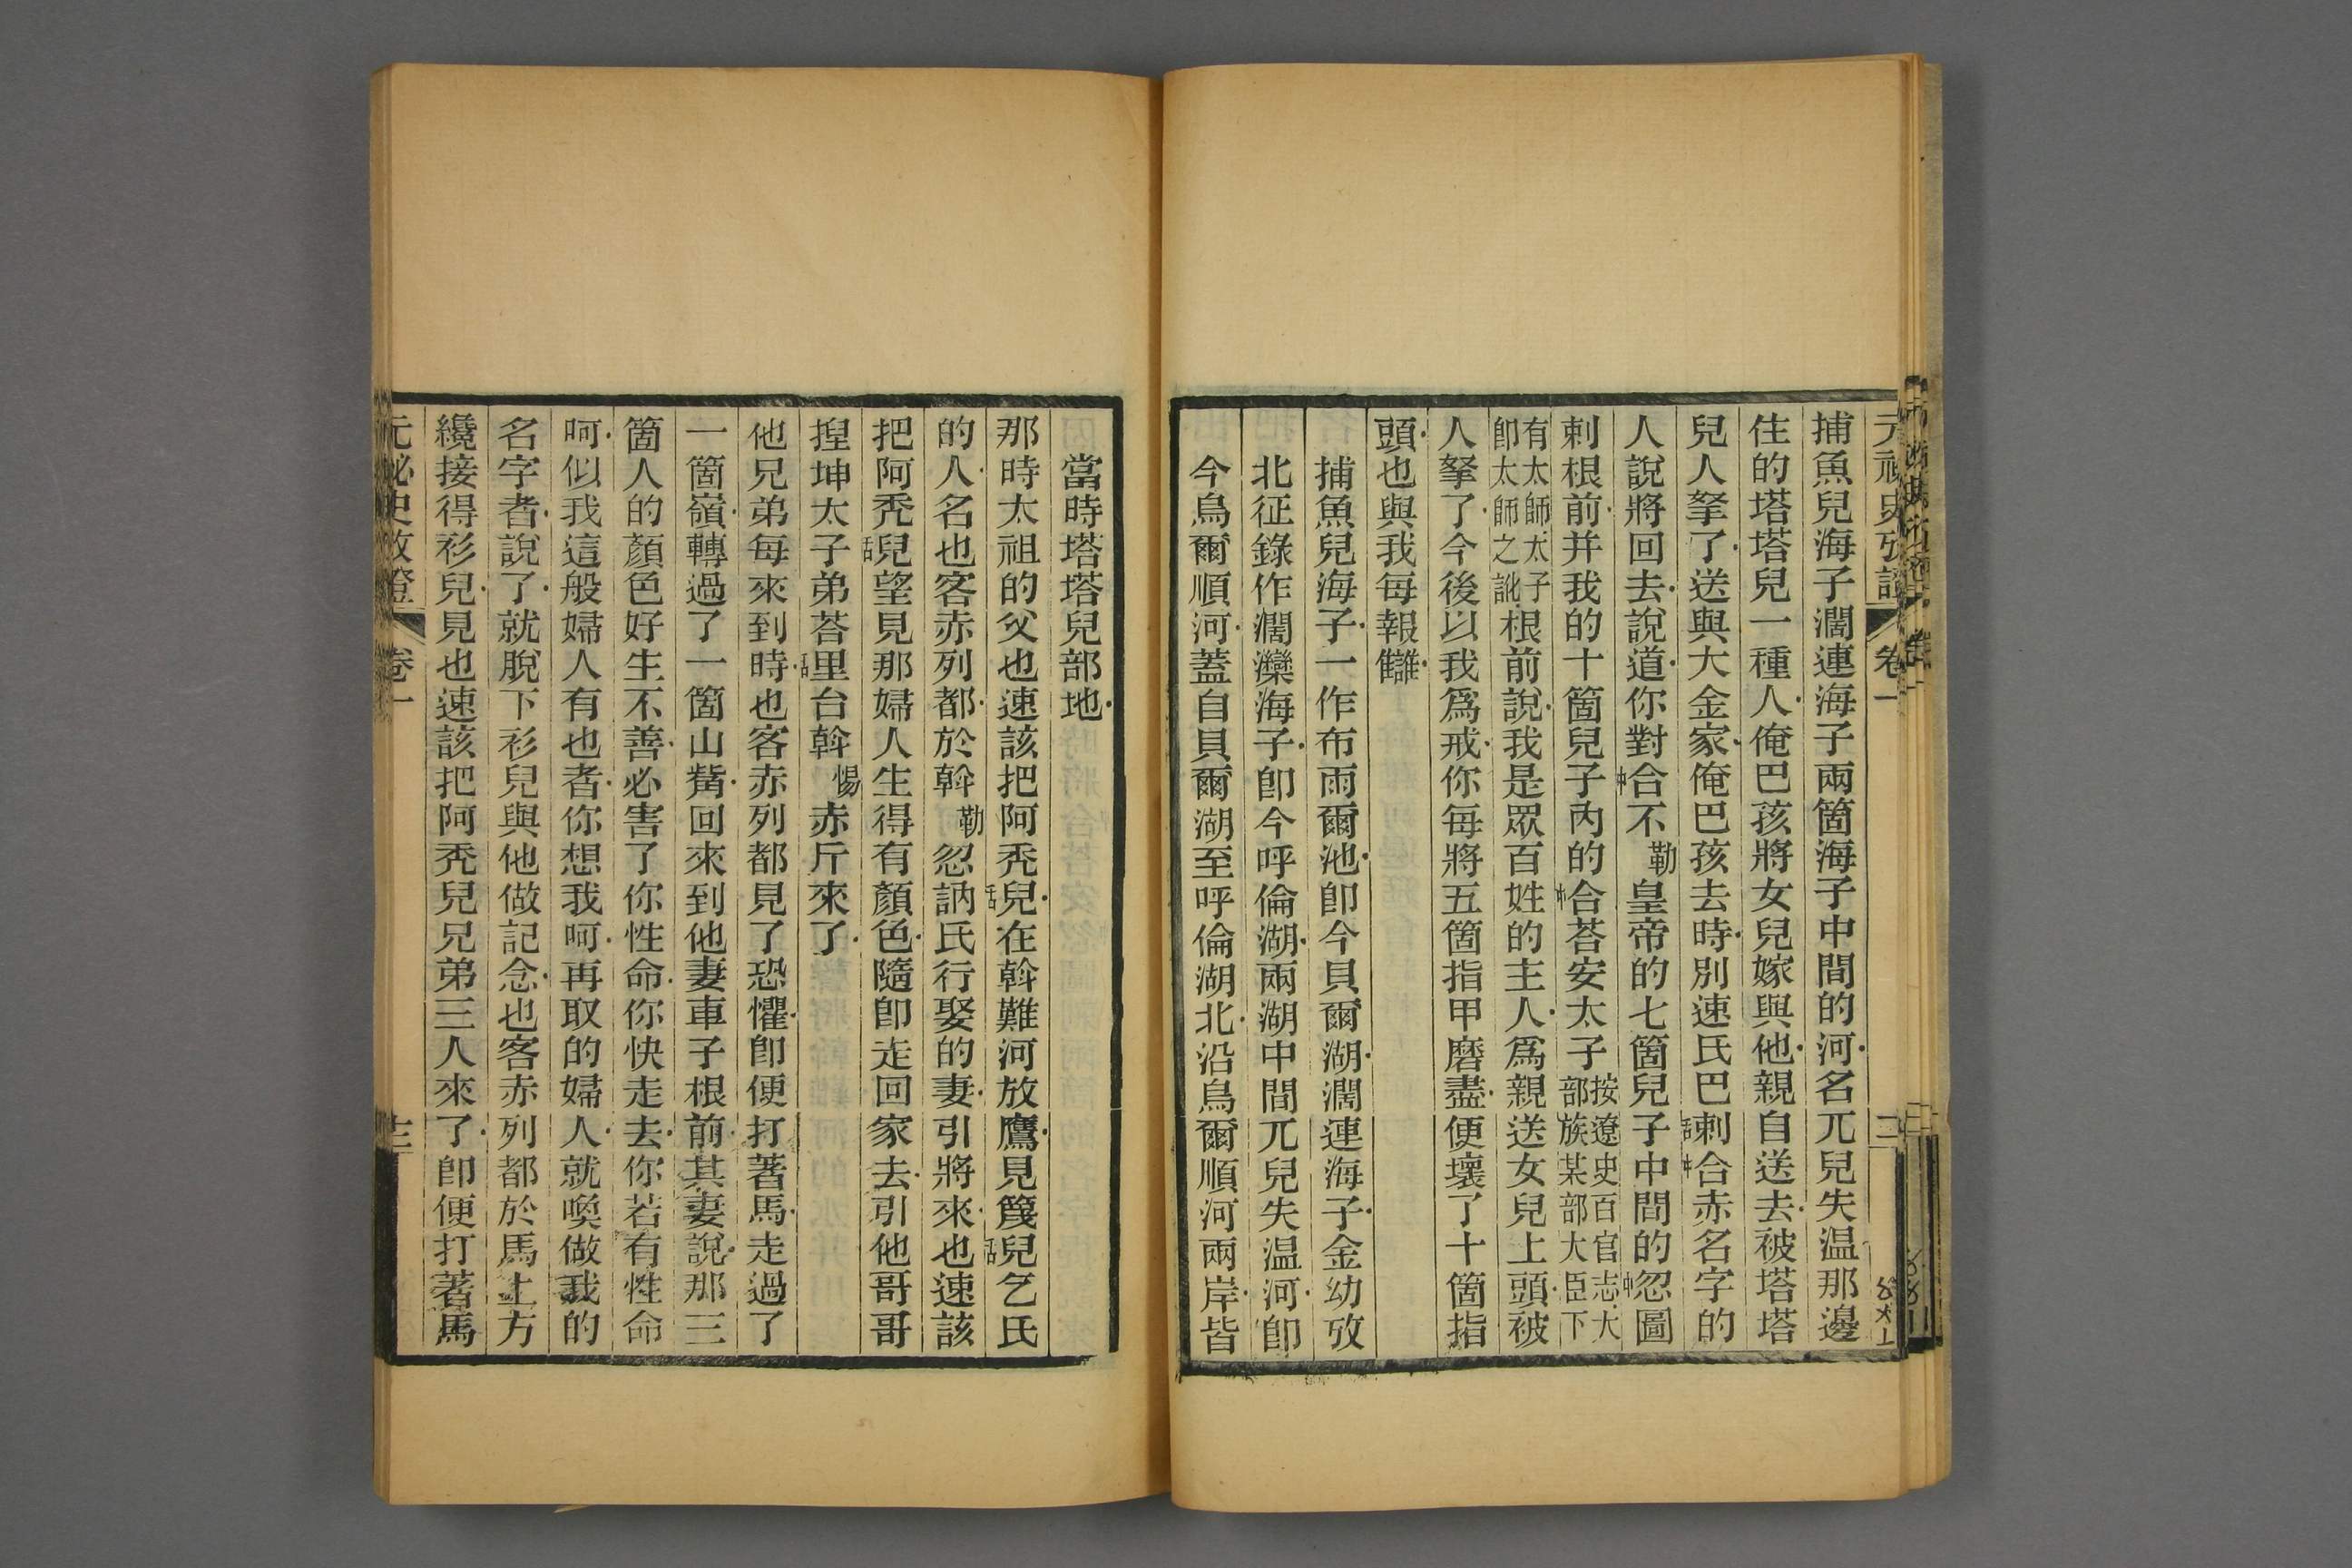 元秘史攷證 卷一
捕魚兒海子濶連海子兩箇海子中間的河名兀兒失温那邊
住的塔塔兒一種人俺巴孩將女兒嫁與他親自送去被塔塔
兒人拏了送與大金家俺巴孩去時別速氏巴舌剌中合赤名字的
人說將回去說道你對中合不勒皇帝的七箇兒子中間的中忽圖
剌根前并我的十箇兒子內的中合荅安太子按遼史百官志大部族某部大臣下
有太師太子即太師之訛根前說我是眾百姓的主人爲親送女兒上頭被
人拏了今後以我爲戒你每將五箇指甲磨盡便壞了十箇指
頭也與我每報讎
捕魚兒海子一作布雨爾池即今貝爾湖濶連海子金幼攷
北征錄作濶灤海子即今呼倫湖兩湖中間兀兒失温河即
今烏爾順河蓋自貝爾湖至呼倫湖北沿烏爾順河兩岸皆
當時塔塔兒部地
那時太祖的父也速該把阿禿舌兒在斡難河放鷹見篾舌兒乞氏
的人名也客赤列都於斡勒忽訥氏行娶的妻引將來也速該
把阿禿舌兒望見那婦人生得有顏色隨即走回家去引他哥哥
揑坤太子弟荅舌里台斡惕赤斤來了
他兄弟每來到時也客赤列都見了恐懼即便打著馬走過了
一箇嶺轉過了一箇山觜回來到他妻車子根前其妻說那三
箇人的顏色好生不善必害了你性命你快走去你若有性命
呵似我這般婦人有也者你想我呵再取的婦人就喚做我的
名字者說了就脫下衫兒與他做記念也客赤列都於馬上方
纔接得衫兒見也速該把阿禿兒兄弟三人來了即便打著馬
元秘史攷證 卷一